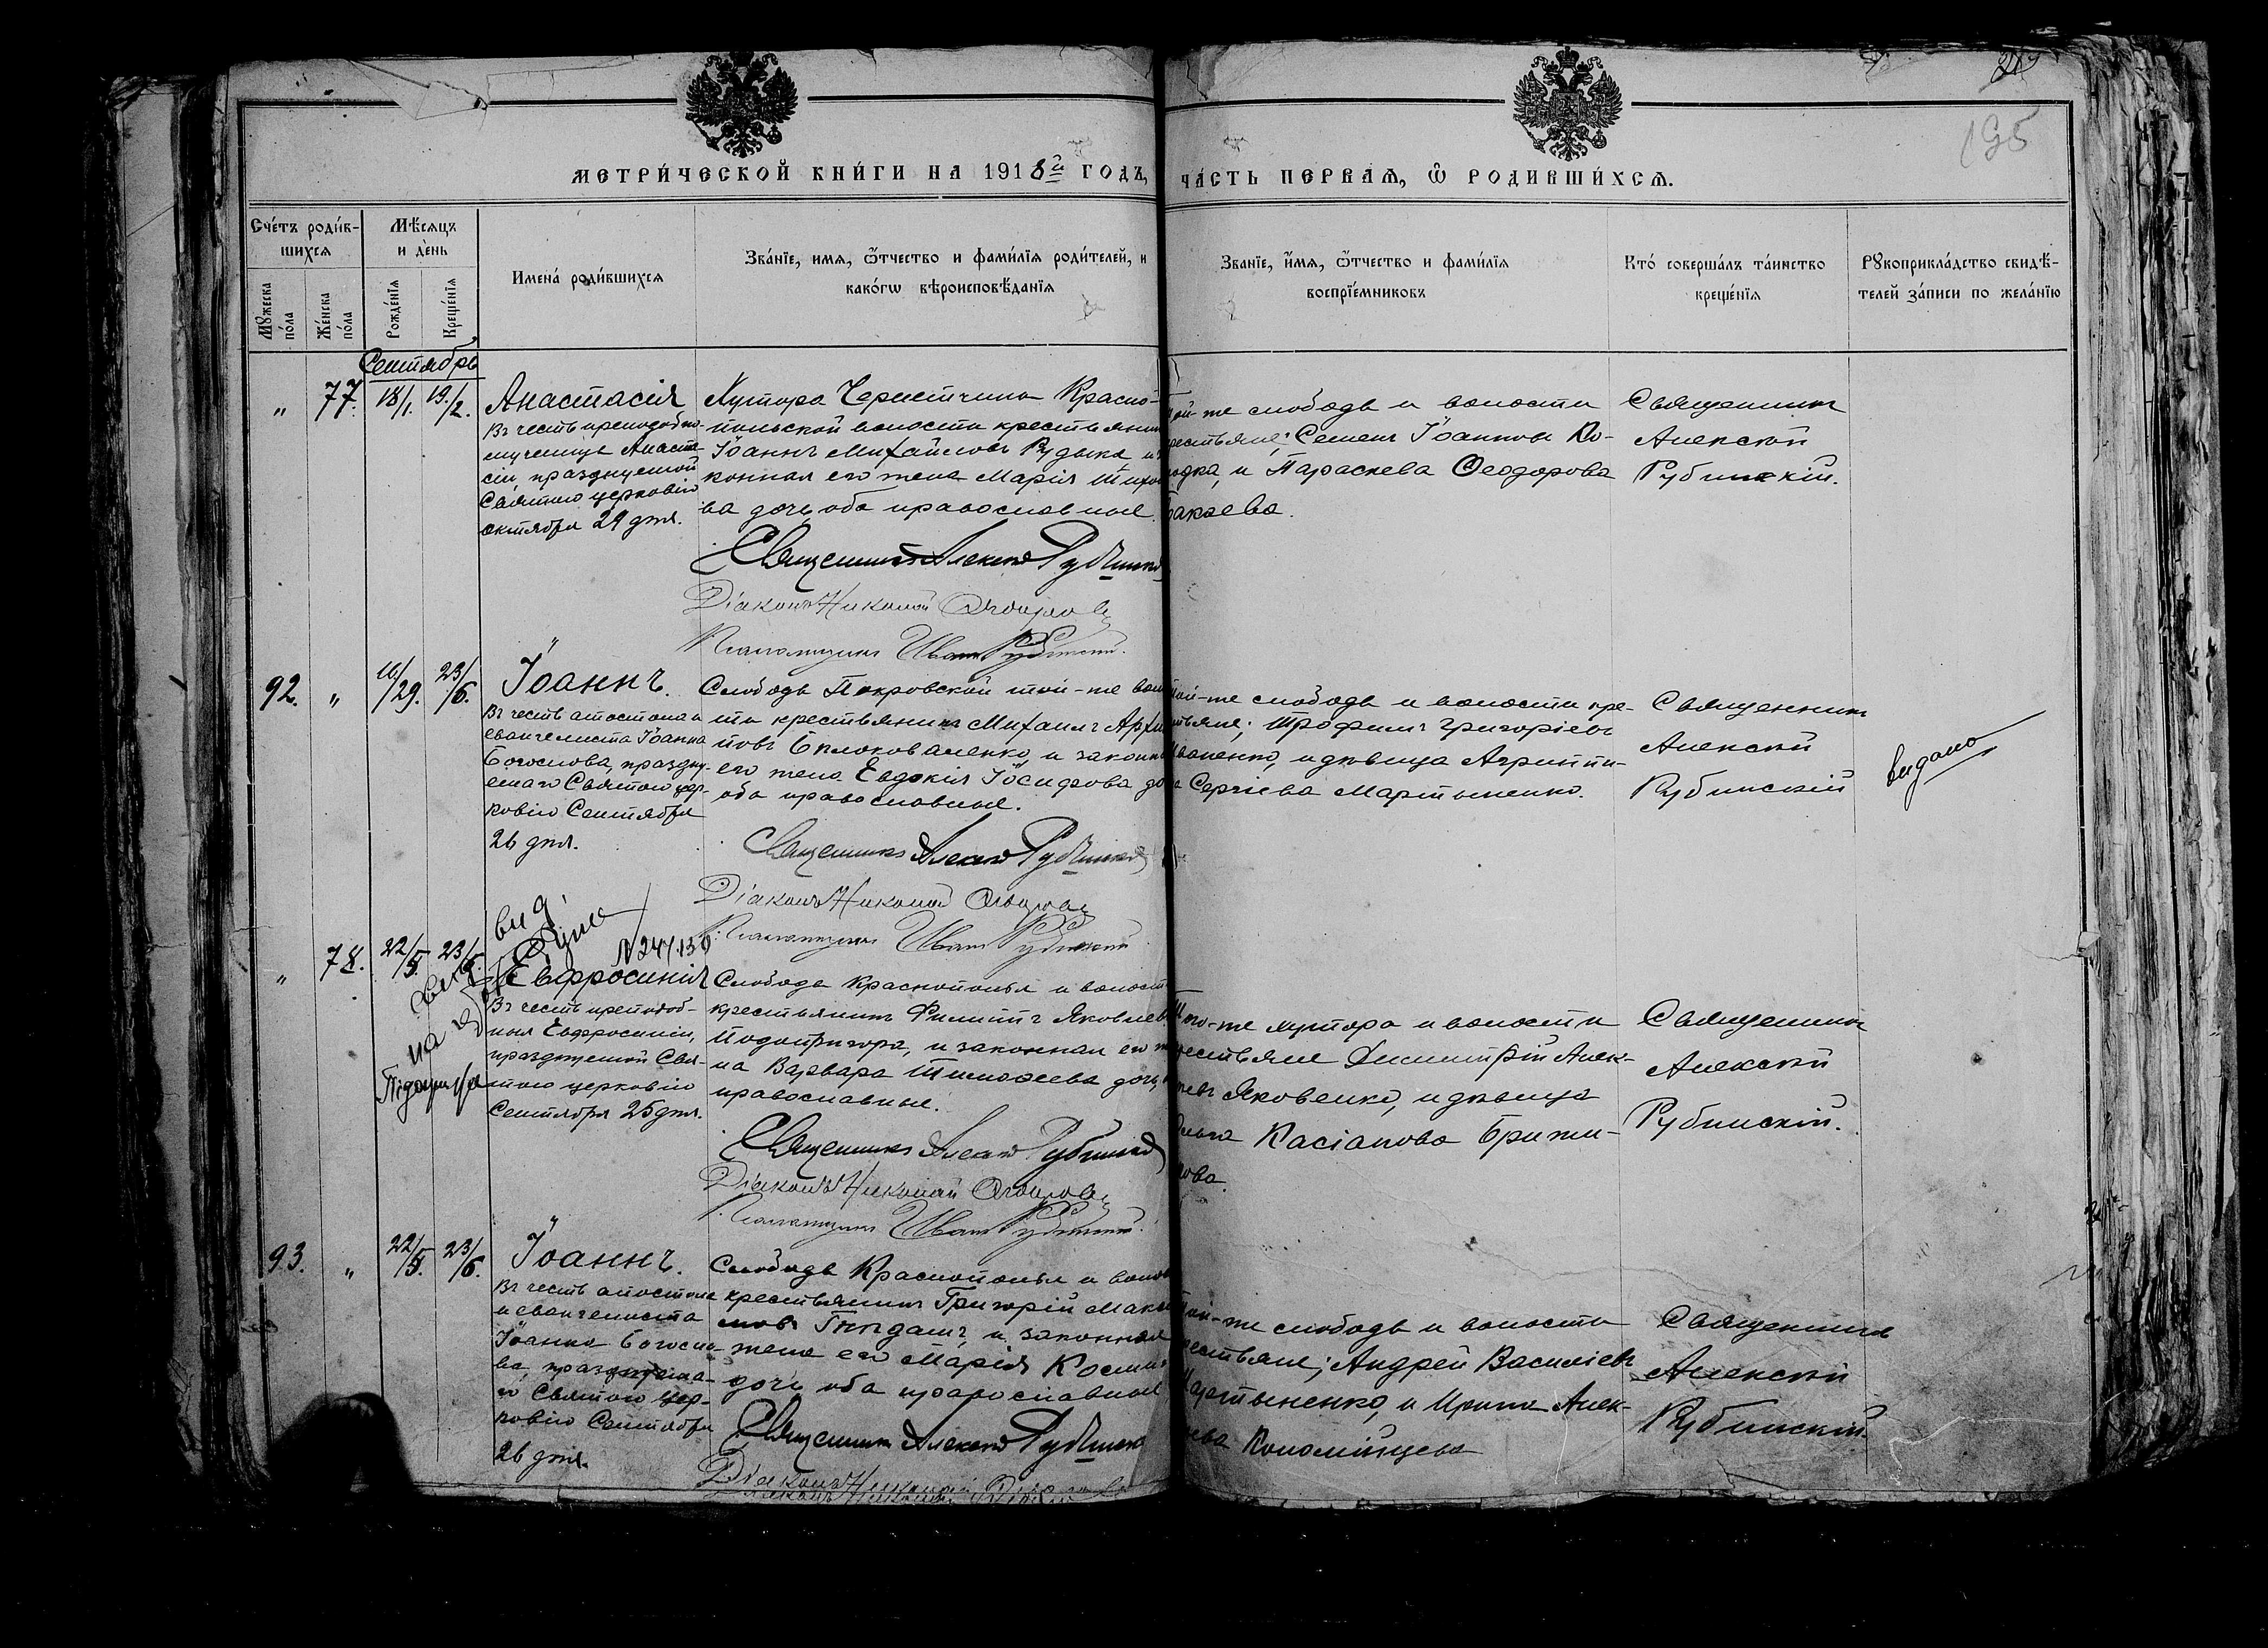 МЕТРИ́ЧЕСКОЙ КНИ́ГИ НА 1918й ГОДЪ, ЧА́СТЬ ПЕРВАѦ, Ѡ РОДИВШИ́ХСѦ.
195
Сче́тъ роди́в-
шихсѧ
Мꙋжеска по́ла
Же́нска по́ла
Мѣ́сѧцъ
и де́нь
Рожде́нїѧ
Креще́нїѧ
Имена́ роди́вшихсѧ
Зва́нїе, имѧ, ѻ́тчество и фами́лїѧ роди́телей, и
како́гѡ вѣроисповѣ́данїѧ
Званїе, и́мѧ, ѻ́тчество и фамі́лїѧ
воспрїе́мниковъ
Кто́ соверша́лъ та́инство
креще́нїѧ
Рꙋкоприкла́дство свидѣ́-
телей за́писи по жела́нїю
Сентябрь
" 77. 18/1. 19/2.
Анастасія
Въ честь преподобно-
мученицы Анаста-
сіи, празднуемой
Святою церковію
октября 29 дня.
Хутора Красно-
польской волости крестьянинъ
Іоаннъ Михайловъ Рудыка и
конная его жена Марія
ва дочь, оба православные.
Священникъ Алексій Рубинскій
Діаконъ Николай
Псаломщикъ Иванъ Рубинскій.
той-же слободы и волости
крестьяне: Семенъ Іоанновъ Ко-
и Параскева Ѳеодорова
Священникъ
Алексій
Рубинскій.
92. " 16/29. 23/6.
Іоаннъ.
Въ честь апостола и
евангелиста Іоанна
Богослова, праздну-
емаго Святою цер-
ковію Сентября
26 дня.
Слободы Покровской той-же
крестьянинъ Михаилъ
повъ Бѣлоковаленко, и законная
его жена Евдокія Іосифова
оба православные.
Священникъ Алексій Рубинскій
Діаконъ Николай
Псаломщикъ Иванъ Рубинскій
той-же слободы и волости кре-
стьяне; Трофимъ Григоріевъ
и дѣвица Агриппи-
на Сергіева Мартыненко.
Священникъ
Алексій
Рубинскій
видано
вид.
№ 247.130
на
" 78. 22/5. 23/6.
Евфросинія
Въ честь преподоб-
ныя Евфросиніи,
празднуемой Свя-
тою церковію
Сентября 25 дня.
Слободы Краснополья и волости
крестьянинъ Филиппъ Яковлевъ
Подопригора, и законная его
на Варвара Тимоѳеева дочь,
православные.
Священникъ Алексій Рубинскій
Діаконъ Николай
Псаломщикъ Иванъ Рубинскій.
того-же хутора и волости
крестьяне Димитрій Алек-
Яковенко, и дѣвица
Касіанова
Священникъ
Алексій
Рубинскій.
93. " 22/5. 23/6.
Іоаннъ.
Въ честь апостола
и евангелиста
Іоанна Богосло-
ва, празднуема-
го Святою цер-
ковію Сентября
26 дня.
Слободы Краснополья и
крестьянинъ Григорій
и законная
жена его Марія
дочь, оба православные
Священникъ Алексій Рубинскій
Діаконъ Николай
той-же слободы и волости
крестьяне; Андрей Василіевъ
Мартыненко, и Ирина Алек-
Коломійцева
Священникъ
Алексій
Рубинскій.